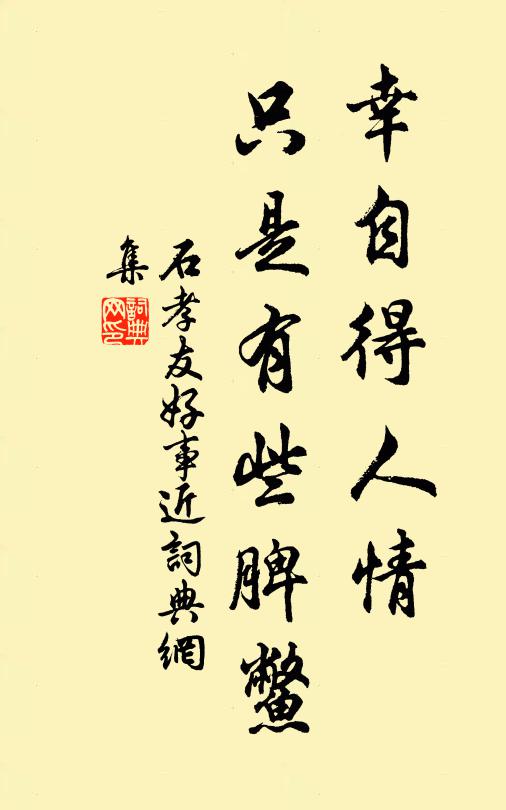 幸自得人情
只是有些脾鱉
石孝友好事近詞典網
集
詞典網印